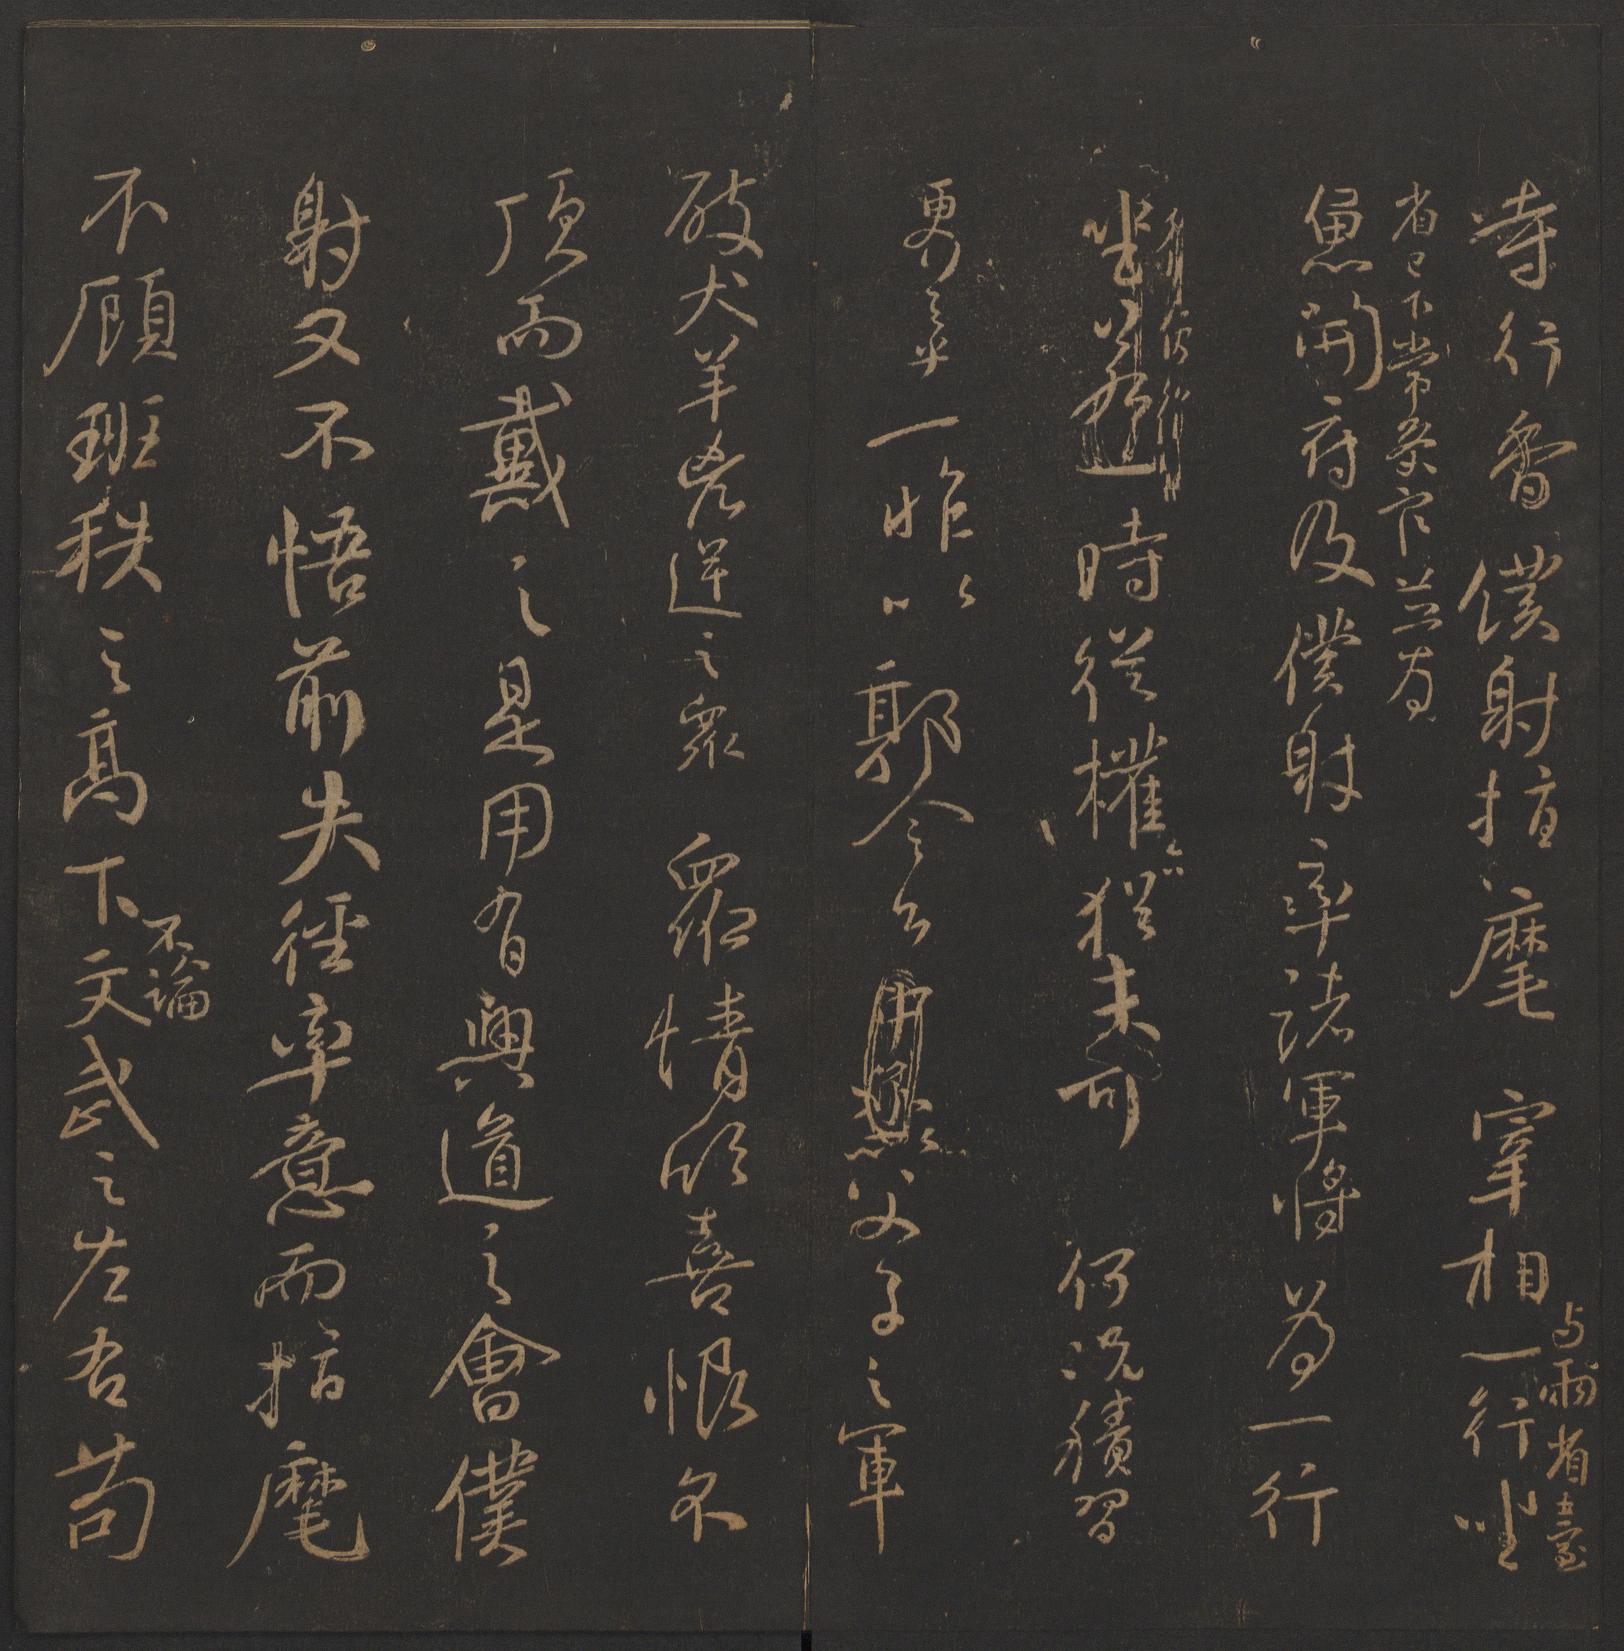 寺行香僕射指麾宰相与兩省臺
省已下常叅官並為
一行坐
魚開府及僕射率諸軍將為一行
坐
時從權亦猶未可何況積習
更行之乎一昨以郭令公
父子之軍
破犬羊兇逆之眾眾情欣喜恨不
頂而戴之是用有興道之會僕
射又不悟前失徑率意而指麾
不顧班秩之高下不論文武之左右苟